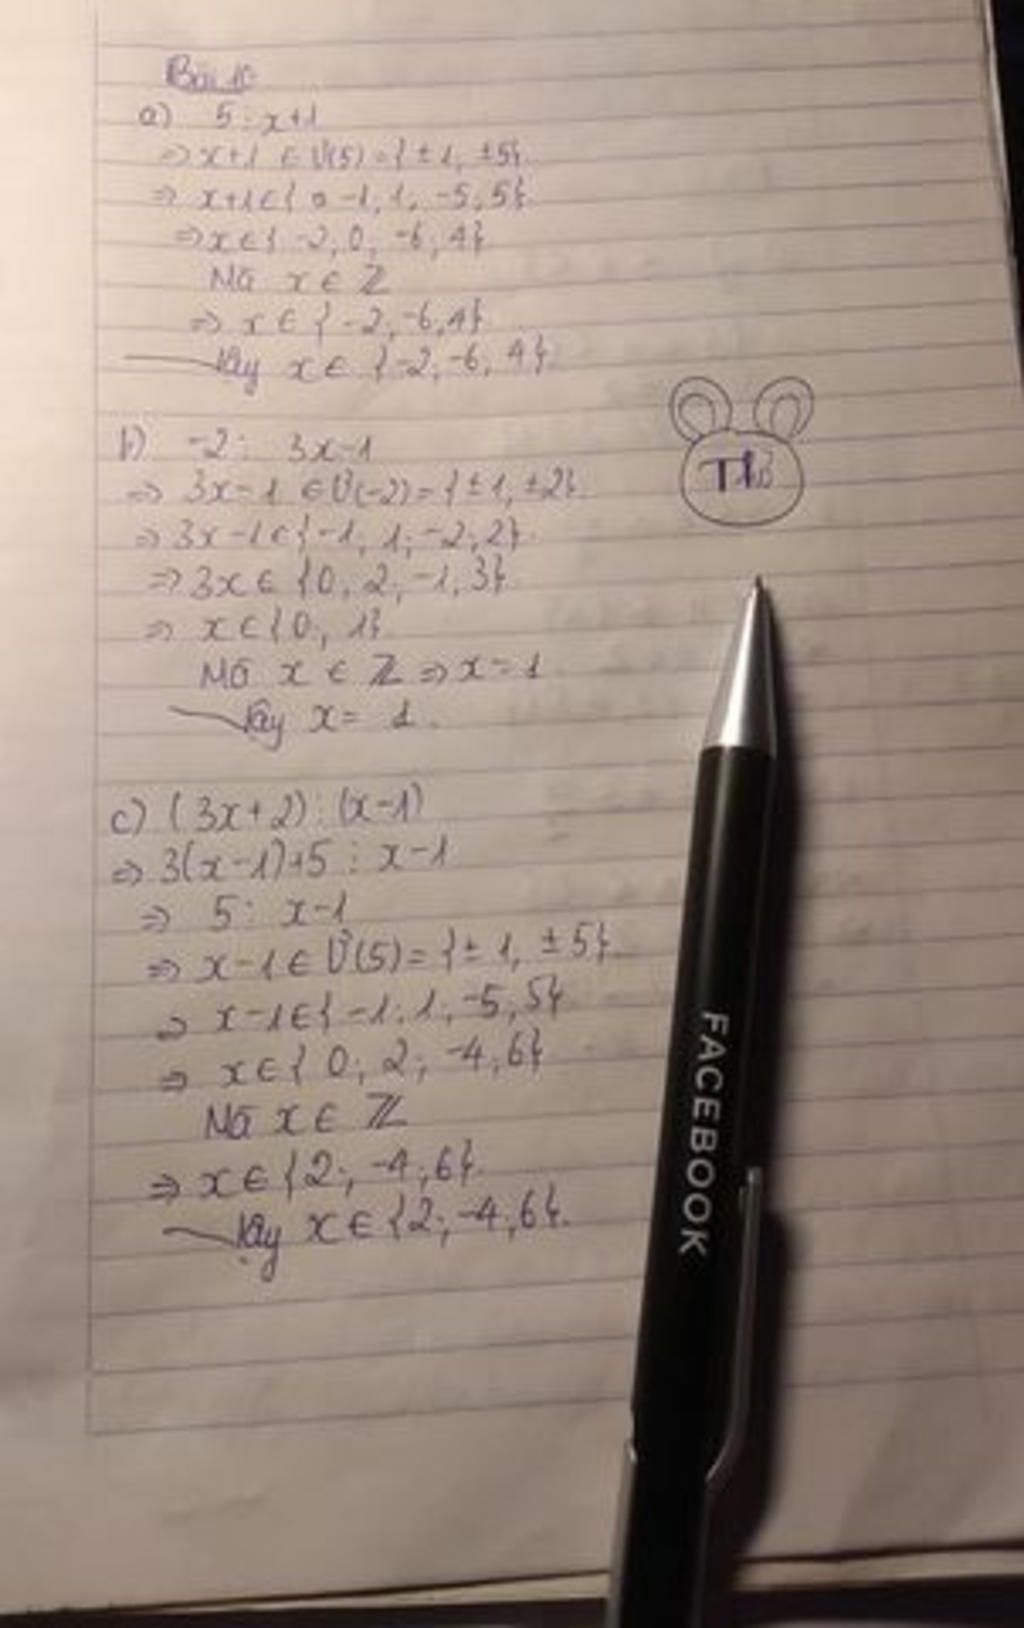 Bài 10
a) 5 ⋮ x+1
⇒ x+1 ∈ Ư(5) = {±1, ±5}
⇒ x+1 ∈ { -1, 1, -5, 5}
⇒ x ∈ { -2, 0, -6, 4}
Mà x ∈ Z
⇒ x ∈ { -2, -6, 4}
Vậy x ∈ {-2; -6, 4}.
b) -2 ⋮ 3x-1
⇒ 3x-1 ∈ Ư(-2) = {±1, ±2}.
⇒ 3x-1 ∈ {-1, 1; -2; 2}.
⇒ 3x ∈ {0, 2; -1, 3}
⇒ x ∈ {0; 1}
Mà x ∈ Z ⇒ x = 1
Vậy x = 1.
c) (3x+2) ⋮ (x-1)
⇒ 3(x-1)+5 ⋮ x-1
⇒ 5 ⋮ x-1
⇒ x-1 ∈ Ư(5) = {±1, ±5}.
⇒ x-1 ∈ {-1; 1; -5, 5}
⇒ x ∈ { 0; 2; -4, 6}
Mà x ∈ Z
⇒ x ∈ {2; -4; 6}.
Vậy x ∈ {2; -4, 6}.
FACEBOOK